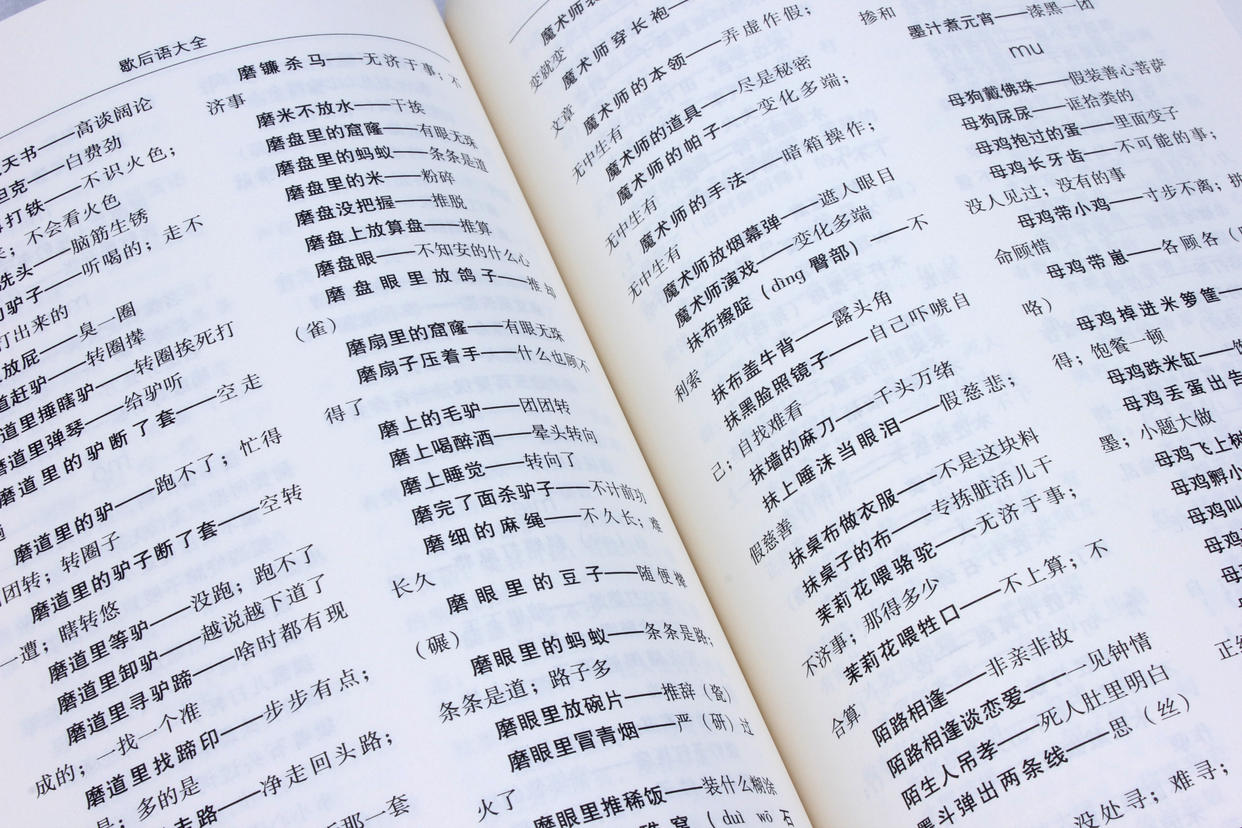 歇后语大全
天书——高谈阔论
坦克——白费劲
打铁——不识火色；
不会看火色
洗头——脑筋生锈
驴子——听喝的；走不
打出来的
放屁——臭一圈
道赶驴——转圈撵
道里捶瞎驴——转圈挨死打
磨道里弹琴——给驴听
磨道里的驴断了套——空走
磨道里的驴——跑不了；忙得
团转；转圈子
磨道里的驴子断了套——空转
一遭；瞎转悠
磨道里等驴——没跑；跑不了
磨道里卸驴——越说越下道了
磨道里寻驴蹄——啥时都有现
成的；一找一个准
磨道里找蹄印——步步有点；
多的是
走路——净走回头路；
那一套
磨镰杀马——无济于事；不
济事
磨米不放水——干挨
磨盘里的窟窿——有眼无珠
磨盘里的蚂蚁——条条是道
磨盘里的米——粉碎
磨盘没把握——推脱
磨盘上放算盘——推算
磨盘眼——不知安的什么心
磨盘眼里放鸽子——推却
（雀）
磨扇里的窟窿——有眼无珠
磨扇子压着手——什么也顾不
得了
磨上的毛驴——团团转
磨上喝醉酒——晕头转向
磨上睡觉——转向了
磨完了面杀驴子——不计前功
磨细的麻绳——不久长；难
长久
磨眼里的豆子——随便碾
（碾）
磨眼里的蚂蚁——条条是路；
条条是道；路子多
磨眼里放碗片——推辞（瓷）
磨眼里冒青烟——严（研）过
火了
磨眼里推稀饭——装什么糊涂
窝（duì wō 石
魔术师
变就变
魔术师穿长袍——
文章
魔术师的本领——弄虚作假；
无中生有
魔术师的道具——尽是秘密
魔术师的帕子——变化多端；
无中生有
魔术师的手法——暗箱操作；
无中生有
魔术师放烟幕弹——遮人眼目
魔术师演戏——变化多端
抹布擦腚（dìng 臀部）——不
利索
抹布盖牛背——露头角
抹黑脸照镜子——自己吓唬自
己；自找难看
抹墙的麻刀——千头万绪
抹上唾沫当眼泪——假慈悲；
假慈善
抹桌布做衣服——不是这块料
抹桌子的布——专拣脏活儿干
茉莉花喂骆驼——无济于事；
不济事；那得多少
茉莉花喂牲口——不上算；不
合算
陌路相逢——非亲非故
陌路相逢谈恋爱——一见钟情
陌生人吊孝——死人肚里明白
墨斗弹出两条线——思（丝）
掺和
墨汁煮元宵——漆黑一团
mu
母狗戴佛珠——假装善心菩萨
母狗尿尿——诓拾粪的
母鸡抱过的蛋——里面变子
母鸡长牙齿——不可能的事；
没人见过；没有的事
母鸡带小鸡——寸步不离；
命顾惜
母鸡带崽——各顾各（
咯）
母鸡掉进米箩筐——
得；饱餐一顿
母鸡跌米缸——
母鸡丢蛋出告
墨；小题大做
母鸡飞上树
母鸡孵小
母鸡叫
母鸡
没处寻；难寻；